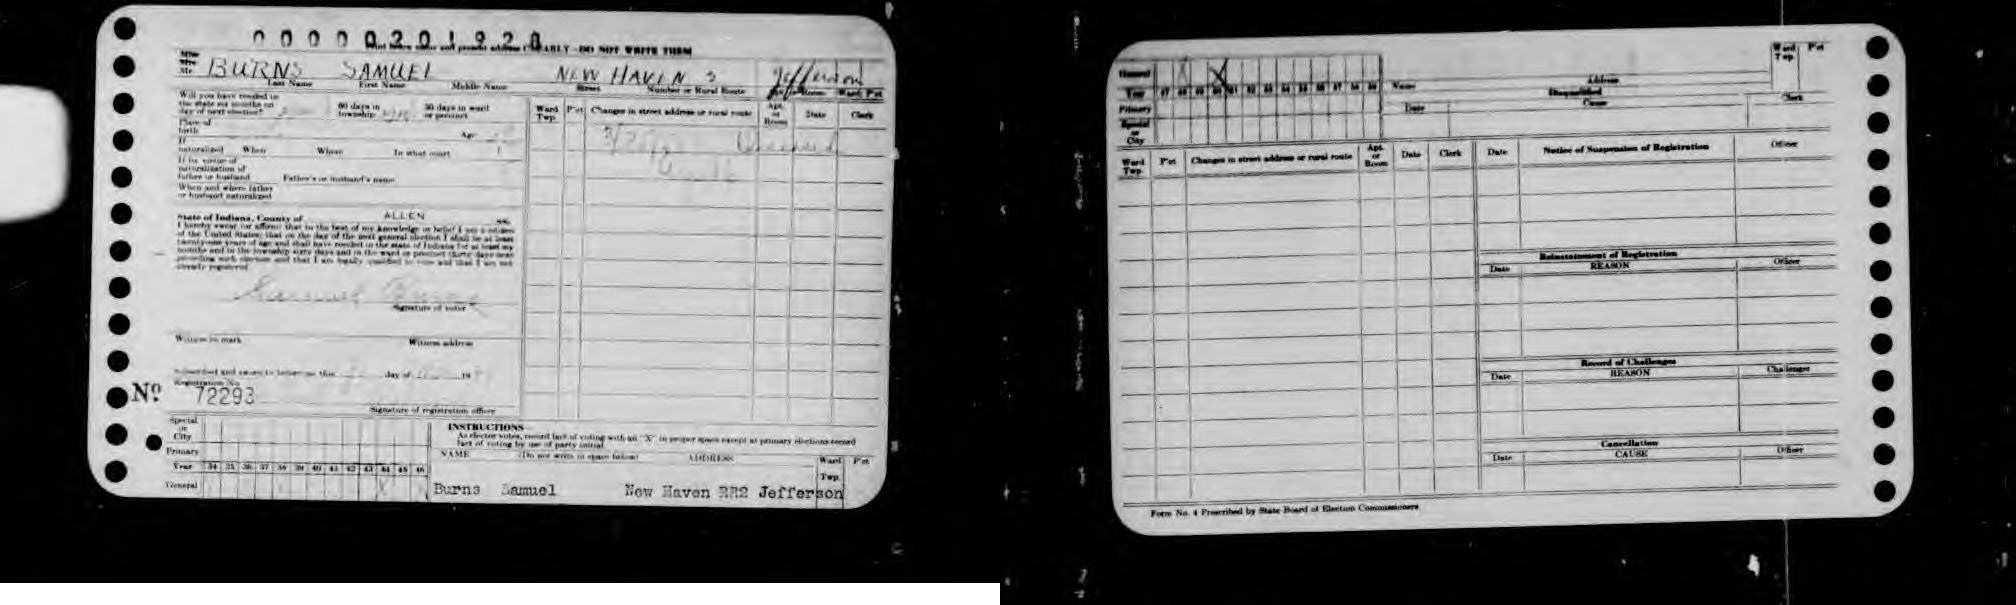 0 0 0 0 0 2 0 1 9 2 0
name and present address CLEARLY - DO NOT WRITE THEM
Miss
Mrs
Mr. BURNS SAMUEL NEW HAVEN Jefferson
Last Name First Name Middle Name Street Number or Rural Route Room Ward Pct
Will you have resided in
the state six months on 60 days in 30 days in ward
day of next election? township or precinct
Place of
birth Age
If
naturalized When Where In what court
If by virtue of
naturalization of
father or husband Father's or husband's name
When and where father
or husband naturalized
Ward
Twp. P'ct Changes in street address or rural route Apt.
or
Room Date Clerk
State of Indiana, County of ALLEN SS.
I hereby swear (or affirm) that to the best of my knowledge or belief I am a citizen
of the United States; that on the day of the next general election I shall be at least
twenty-one years of age and shall have resided in the state of Indiana for at least six
months and in the township sixty days and in the ward or precinct thirty days next
preceding such election and that I am legally qualified to vote and that I am not
already registered
Samuel Burns
Signature of voter
Witness to mark Witness address
Subscribed and sworn to before me this day of 19
Registration No.
No 72293
Signature of registration officer
Special
or
City
Primary
Year 34 35 36 37 38 39 40 41 42 43 44 45 46
General X
INSTRUCTIONS
As elector votes, record fact of voting with an "X" in proper space except at primary elections record
fact of voting by use of party initial.
NAME (Do not write in space below) ADDRESS Ward
Twp. P'ct
Burns Samuel New Haven RR2 Jefferson
General X
Year 47 48 49 50 51 52 53 54 55 56 57 58 59
Primary
Special
or
City
Name Address Ward
Twp. P'ct
Disqualified
Date Cause Clerk
Ward
Twp. P'ct Changes in street address or rural route Apt.
or
Room Date Clerk
Date Notice of Suspension of Registration Officer
Reinstatement of Registration
Date REASON Officer
Record of Challenges
Date REASON Challenger
Cancellation
Date CAUSE Officer
Form No. 4 Prescribed by State Board of Election Commissioners